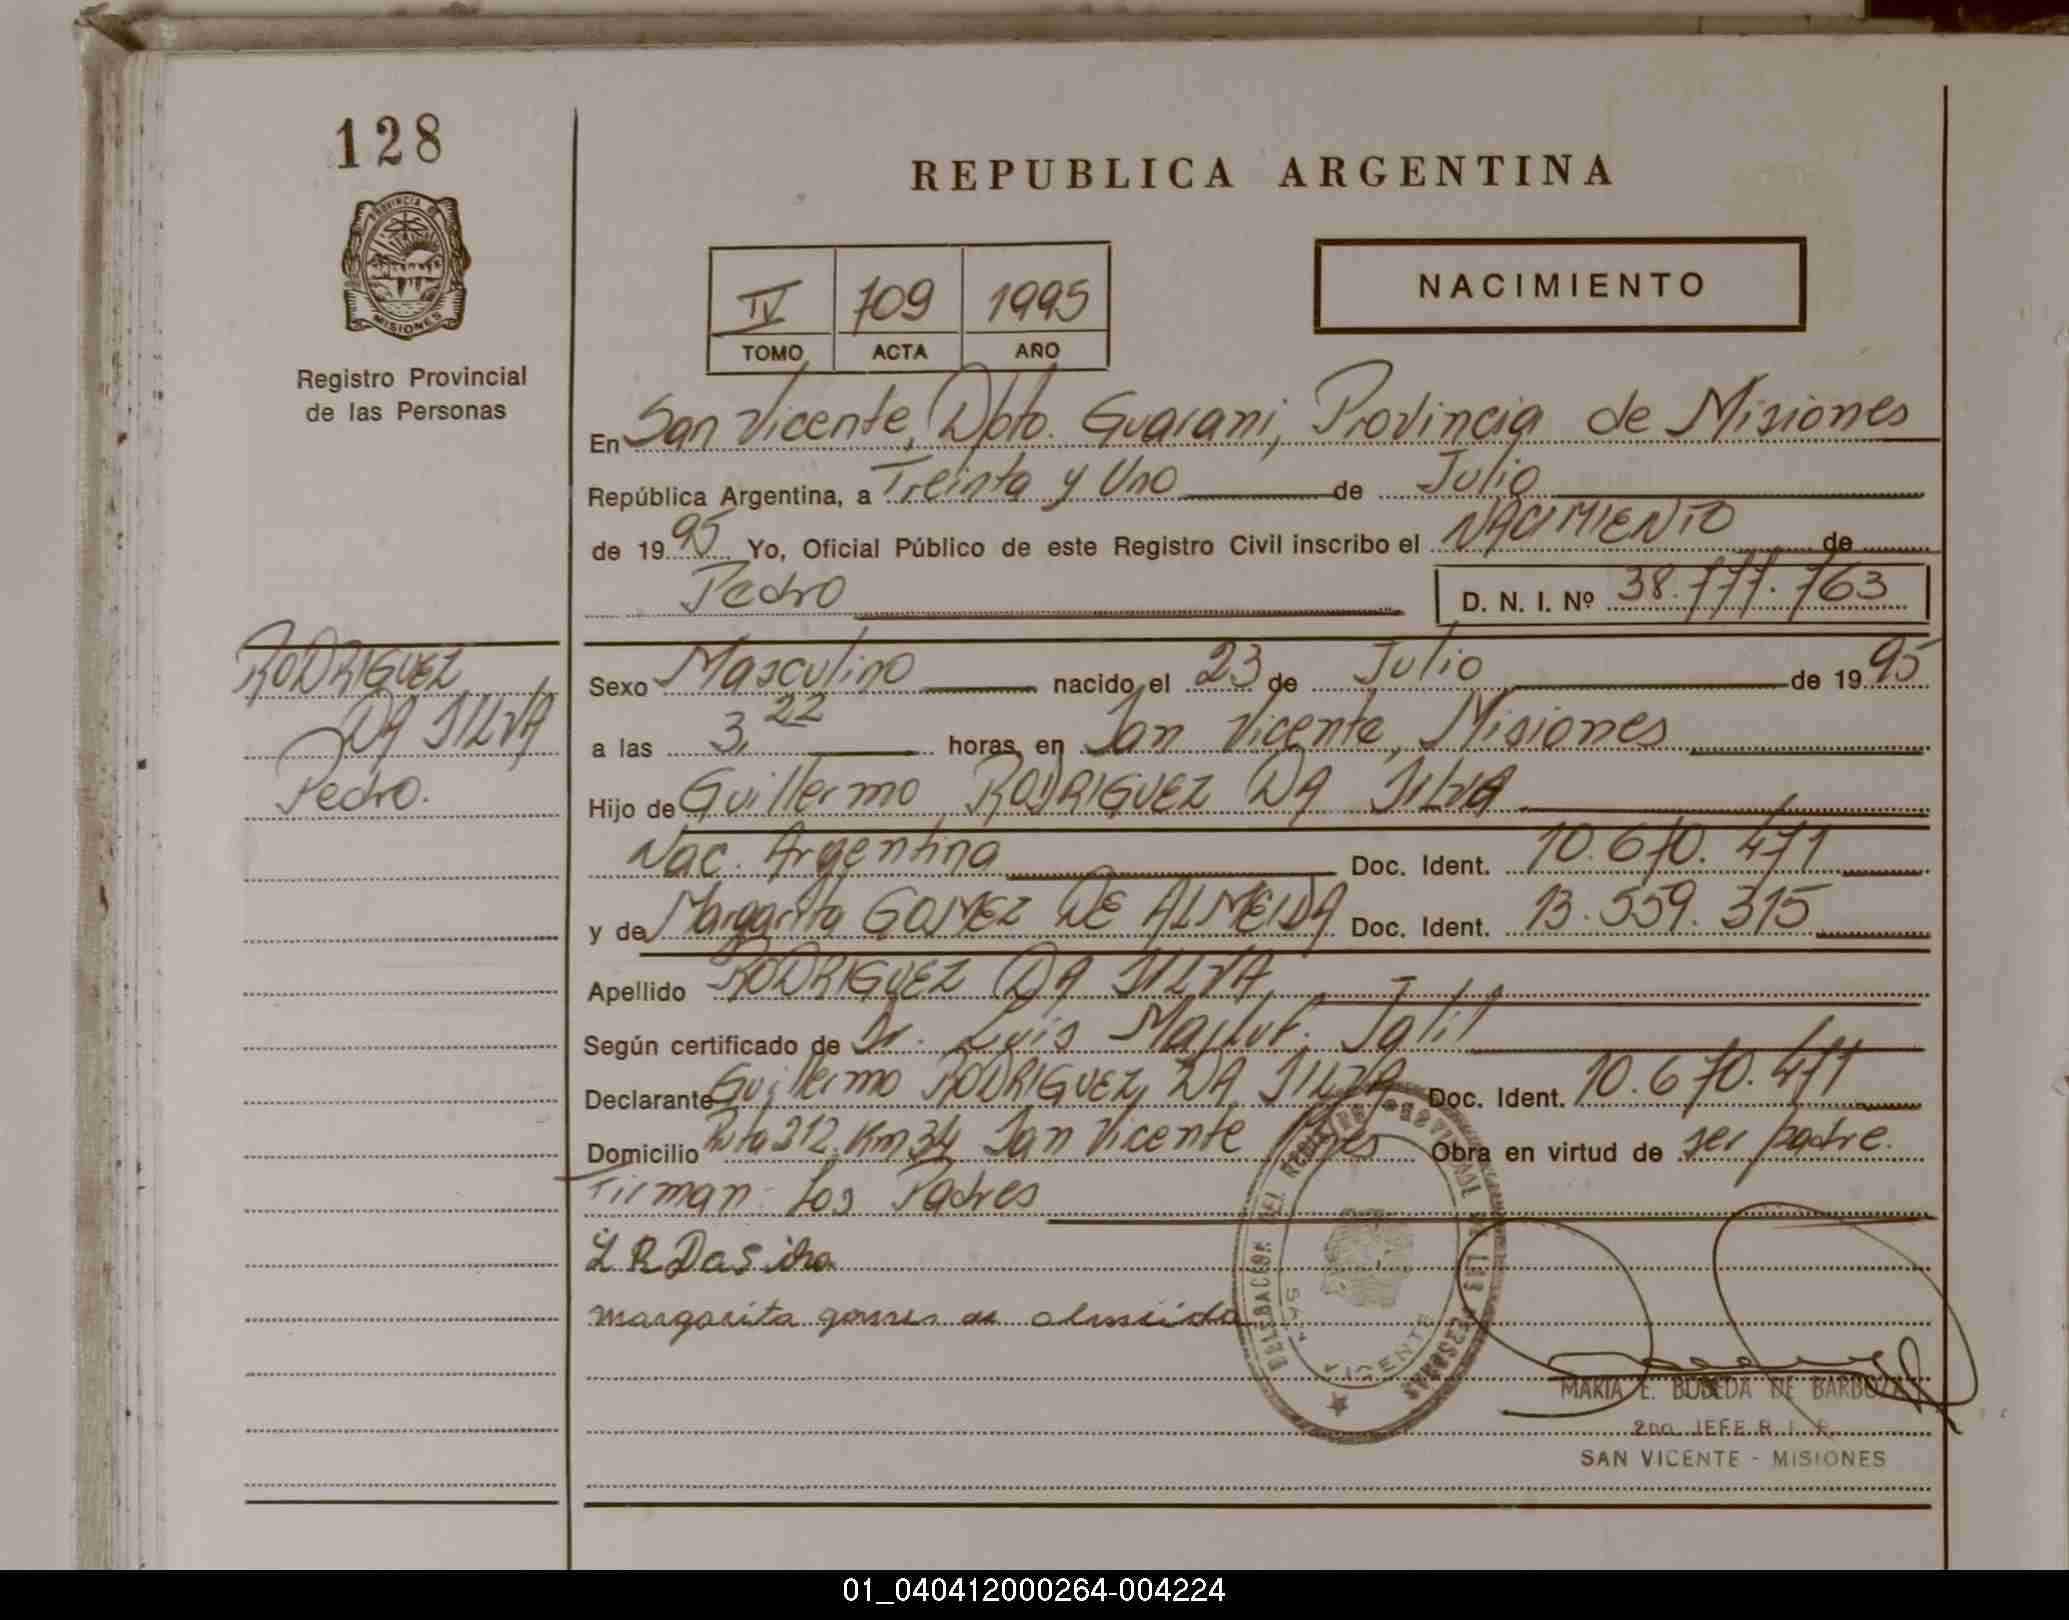 128
PROVINCIA DE
MISIONES
Registro Provincial
de las Personas
REPUBLICA ARGENTINA
IV 709 1995
TOMO ACTA AÑO
NACIMIENTO
En San Vicente, Dpto. Guarani, Provincia de Misiones
República Argentina, a Treinta y Uno de Julio
de 1995 Yo, Oficial Público de este Registro Civil inscribo el NACIMIENTO de
Pedro D. N. I. Nº 38.777.763
RODRIGUEZ
DA SILVA
Pedro.
Sexo Masculino nacido el 23 de Julio de 1995
a las 3,22 horas, en San Vicente, Misiones
Hijo de Guillermo RODRIGUEZ DA SILVA
Nac. Argentina Doc. Ident. 10.670.471
y de Margarita GOMEZ DE ALMEIDA Doc. Ident. 13.559.315
Apellido RODRIGUEZ DA SILVA
Según certificado de Dr. Luis Jalil
Declarante Guillermo RODRIGUEZ DA SILVA Doc. Ident. 10.670.471
Domicilio Ruta 212 Km 34 San Vicente Mnes Obra en virtud de ser padre.
Firman: Los Padres
margarita gomes de almeida
DELEGACION DEL REGISTRO PROVINCIAL DE LAS PERSONAS
SAN VICENTE
MARIA E. BUBEDA DE BARBOZA
2DO. JEFE R.
SAN VICENTE - MISIONES
01_040412000264-004224